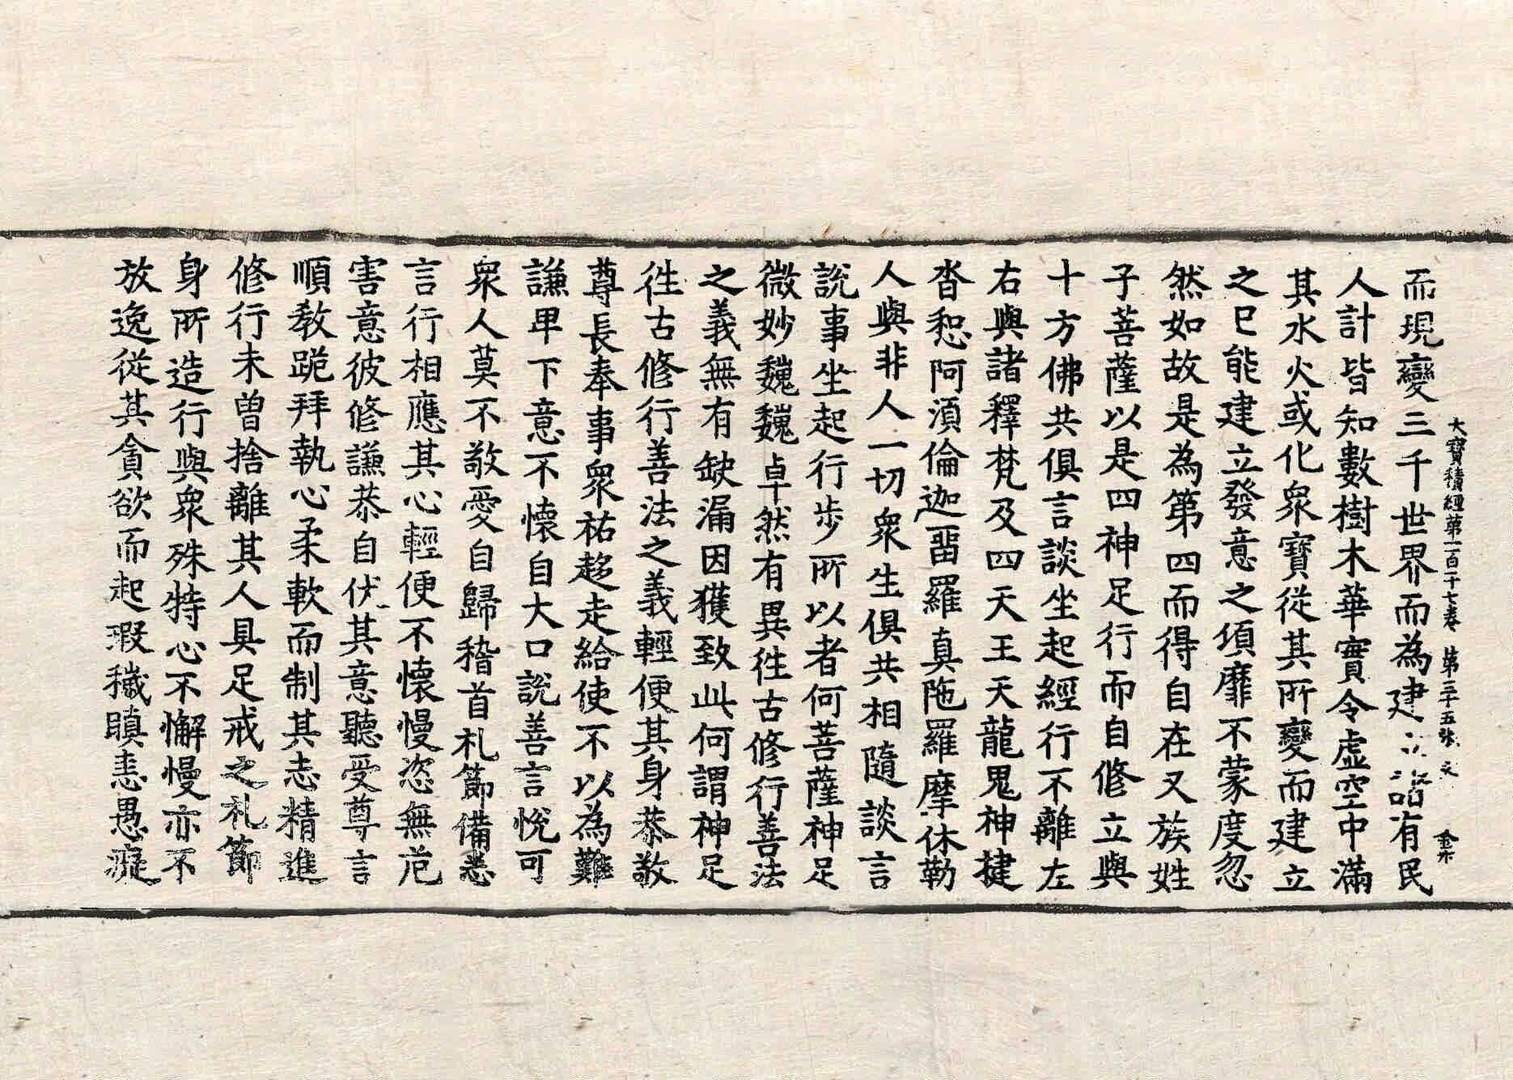 大寶積經第一百十七卷 第三十五張
而現變三千世界而為建立諮有民
人計皆知數樹木華實令虛空中滿
其水火或化眾寶從其所變而建立
之已能建立發意之頃靡不蒙度忽
然如故是為第四而得自在又族姓
子菩薩以是四神足行而自修立與
十方佛共俱言談坐起經行不離左
右與諸釋梵及四天王天龍鬼神揵
沓惒阿須倫迦畱羅真陁羅摩休勒
人與非人一切眾生俱共相隨談言
說事坐起行步所以者何菩薩神足
微妙巍巍卓然有異徃古修行善法
之義無有缺漏因獲致此何謂神足
徃古修行善法之義輕便其身恭敬
尊長奉事眾祐趍走給使不以為難
謙卑下意不懷自大口說善言悅可
眾人莫不敬愛自歸稽首礼節備悉
言行相應其心輕便不懷慢恣無危
害意彼修謙恭自伏其意聽受尊言
順教跪拜執心柔軟而制其志精進
修行未曾捨離其人具足戒之礼節
身所造行與眾殊特心不懈慢亦不
放逸從其貪欲而起瑕穢瞋恚愚癡